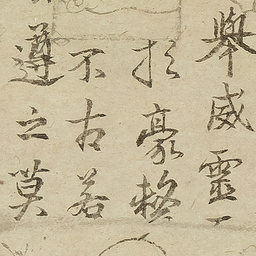 舉威靈
於豪
不古若
遵之莫